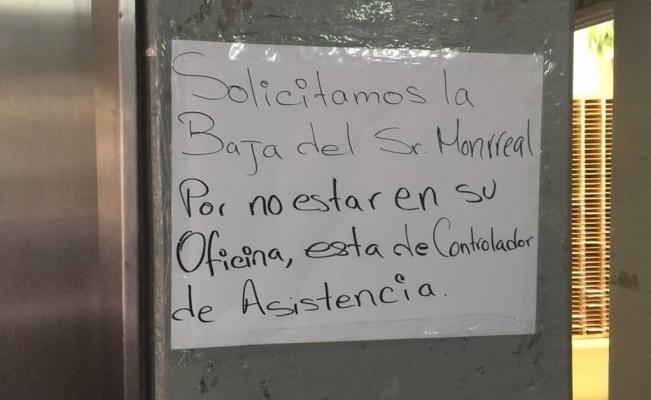 Solicitamos la
Baja del Sr. Monrreal
Por no estar en su
Oficina, esta de Controlador
de Asistencia.